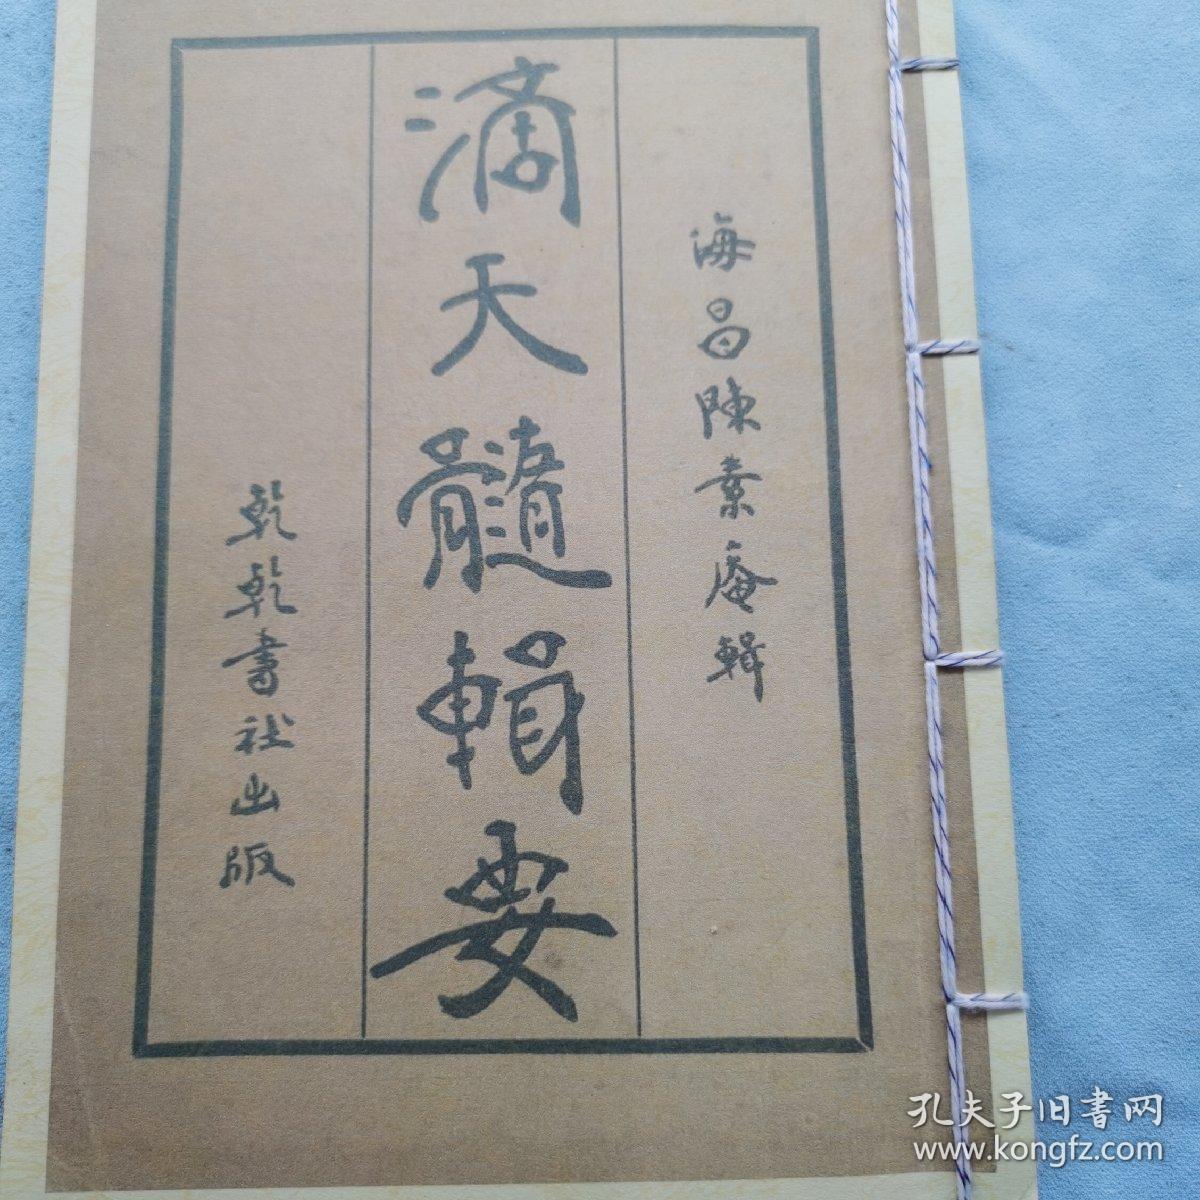 海昌陳素庵輯
滴天髓輯要
乾乾書社出版
孔夫子旧書网
www.kongfz.com